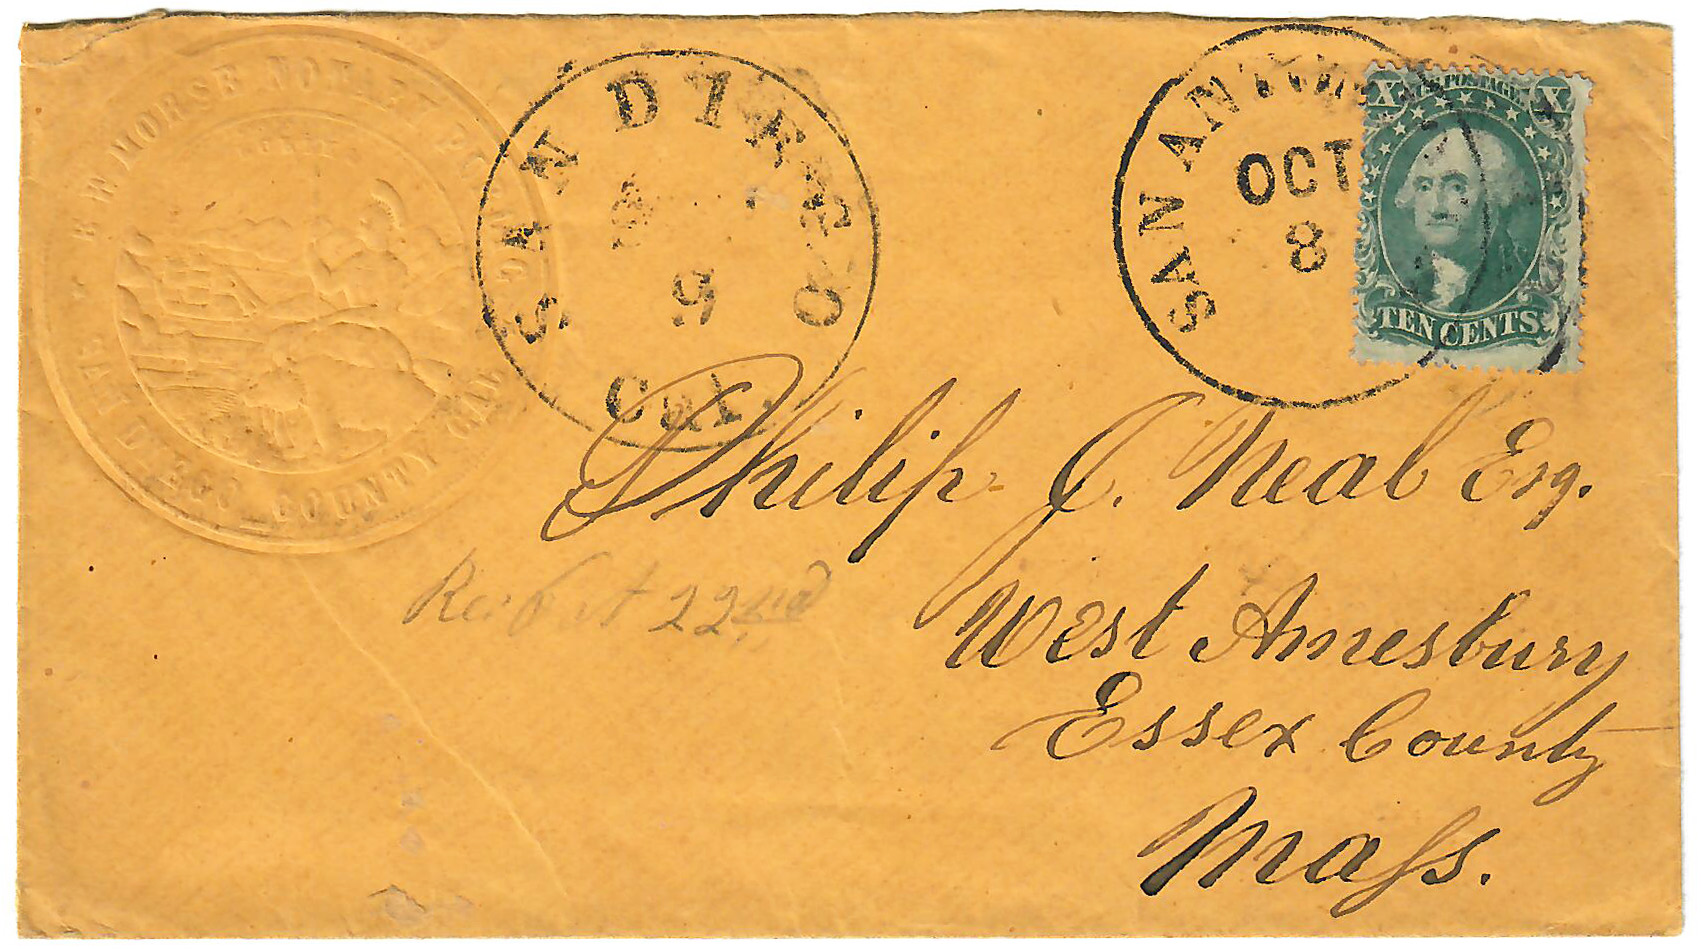 E W MORSE NOTARY
SAN DIEGO COUNTY CAL
SAN DIEGO
9
Cal.
SAN ANTONIO
OCT
8
X U.S. POSTAGE X
TEN CENTS
Philip J. Neal Esq.
22nd
West Amesbury
Essex County
Mass.